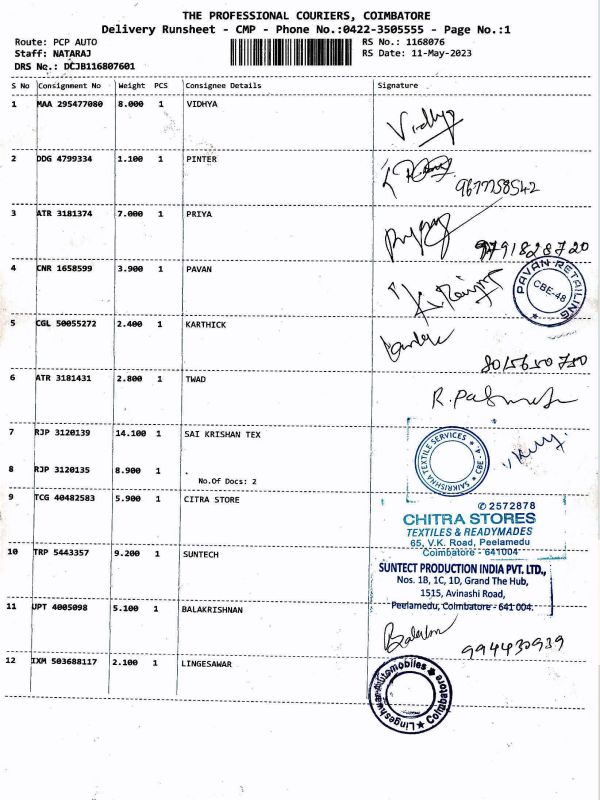 THE PROFESSIONAL COURIERS, COIMBATORE
Delivery Runsheet - CMP - Phone No.:0422-3505555 - Page No.:1
Route: PCP AUTO RS No.: 1168076
Staff: NATARAJ RS Date: 11-May-2023
DRS No.: DCJB116807601
S No Consignment No Weight PCS Consignee Details Signature
1 MAA 295477080 8.000 1 VIDHYA Vidhya
2 DDG 4799334 1.100 1 PINTER
9677758542
3 ATR 3181374 7.000 1 PRIYA
9791828720
4 CNR 1658599 3.900 1 PAVAN
PAVAN RETAILING
CBE-48
5 CGL 50055272 2.400 1 KARTHICK
8015650750
6 ATR 3181431 2.800 1 TWAD
7 RJP 3120139 14.100 1 SAI KRISHAN TEX
SAIKRISHNA TEXTILE SERVICES
CBE - 4.
8 RJP 3120135 8.900 1 .
No.Of Docs: 2
9 TCG 40482583 5.900 1 CITRA STORE
✆ 2572878
CHITRA STORES
TEXTILES & READYMADES
65, V.K. Road, Peelamedu
Coimbatore - 641004
10 TRP 5443357 9.200 1 SUNTECH
SUNTECT PRODUCTION INDIA PVT. LTD.,
Nos. 1B, 1C, 1D, Grand The Hub,
1515, Avinashi Road,
Peelamedu, Coimbatore - 641 004.
11 JPT 4005098 5.100 1 BALAKRISHNAN
994430939
12 IXM 503688117 2.100 1 LINGESAWAR
Lingeshwar Automobiles
Coimbatore